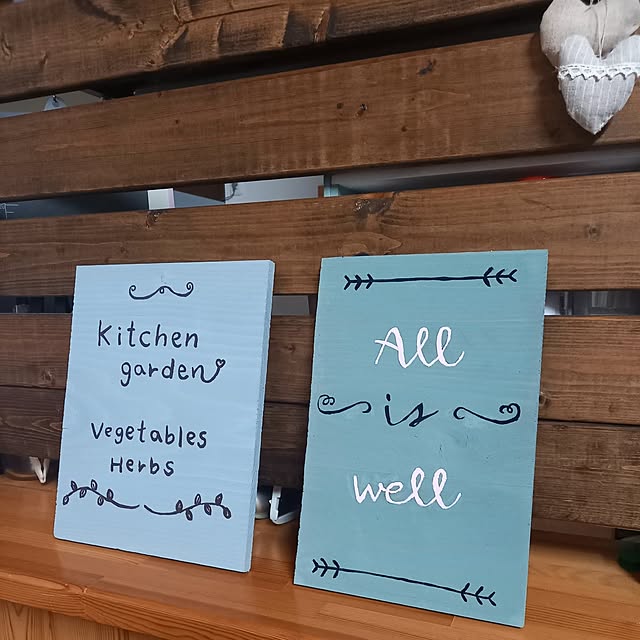 Kitchen
garden
Vegetables
Herbs
All
is
well